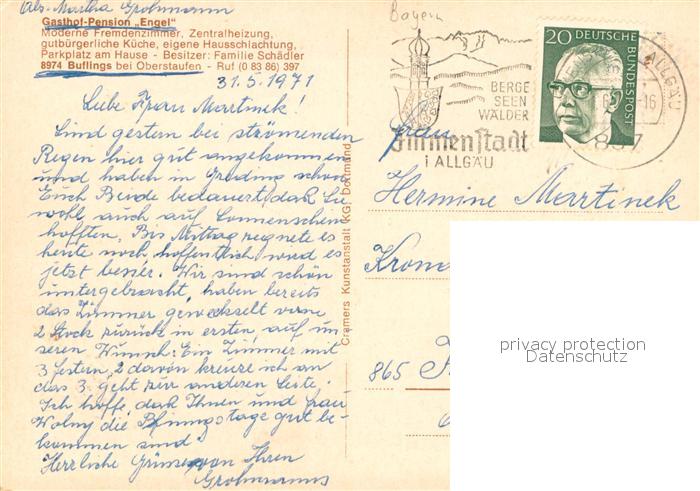 Abs. Martha Grohmann
Gasthof-Pension „Engel"
Moderne Fremdenzimmer, Zentralheizung,
gutbürgerliche Küche, eigene Hausschlachtung,
Parkplatz am Hause - Besitzer: Familie Schädler
8974 Buflings bei Oberstaufen - Ruf (0 83 86) 397
31.5.1971
Liebe Frau Martinek!
Sind gestern bei strömenden
Regen hier gut angekommen
und haben in Greding schon
Euch Beide bedauert, daß Sie
wohl auch auf Sonnenschein
hofften. Bis Mittag regnete es
heute noch, hoffentlich wird es
jetzt besser. Wir sind schön
untergebracht, haben bereits
das Zimmer gewechselt vorne
2 Stock zurück in ersten, auf un-
seren Wunsch: Ein Zimmer mit
3 Festern, 2 davon kreuze ich an
das 3. geht zur anderen Seite.
Ich hoffe, daß Ihnen und Frau
Wolny die Pfingstage gut be-
kommen sind.
Herzliche Grüsse von Ihren
Grohmanns
Cramers Kunstanstalt KG, Dortmund
Bayern
BERGE
SEEN
WÄLDER
Immenstadt
i ALLGÄU
20 DEUTSCHE
BUNDESPOST
ALLGÄU
897
Frau
Hermine Martinek
865
privacy protection
Datenschutz